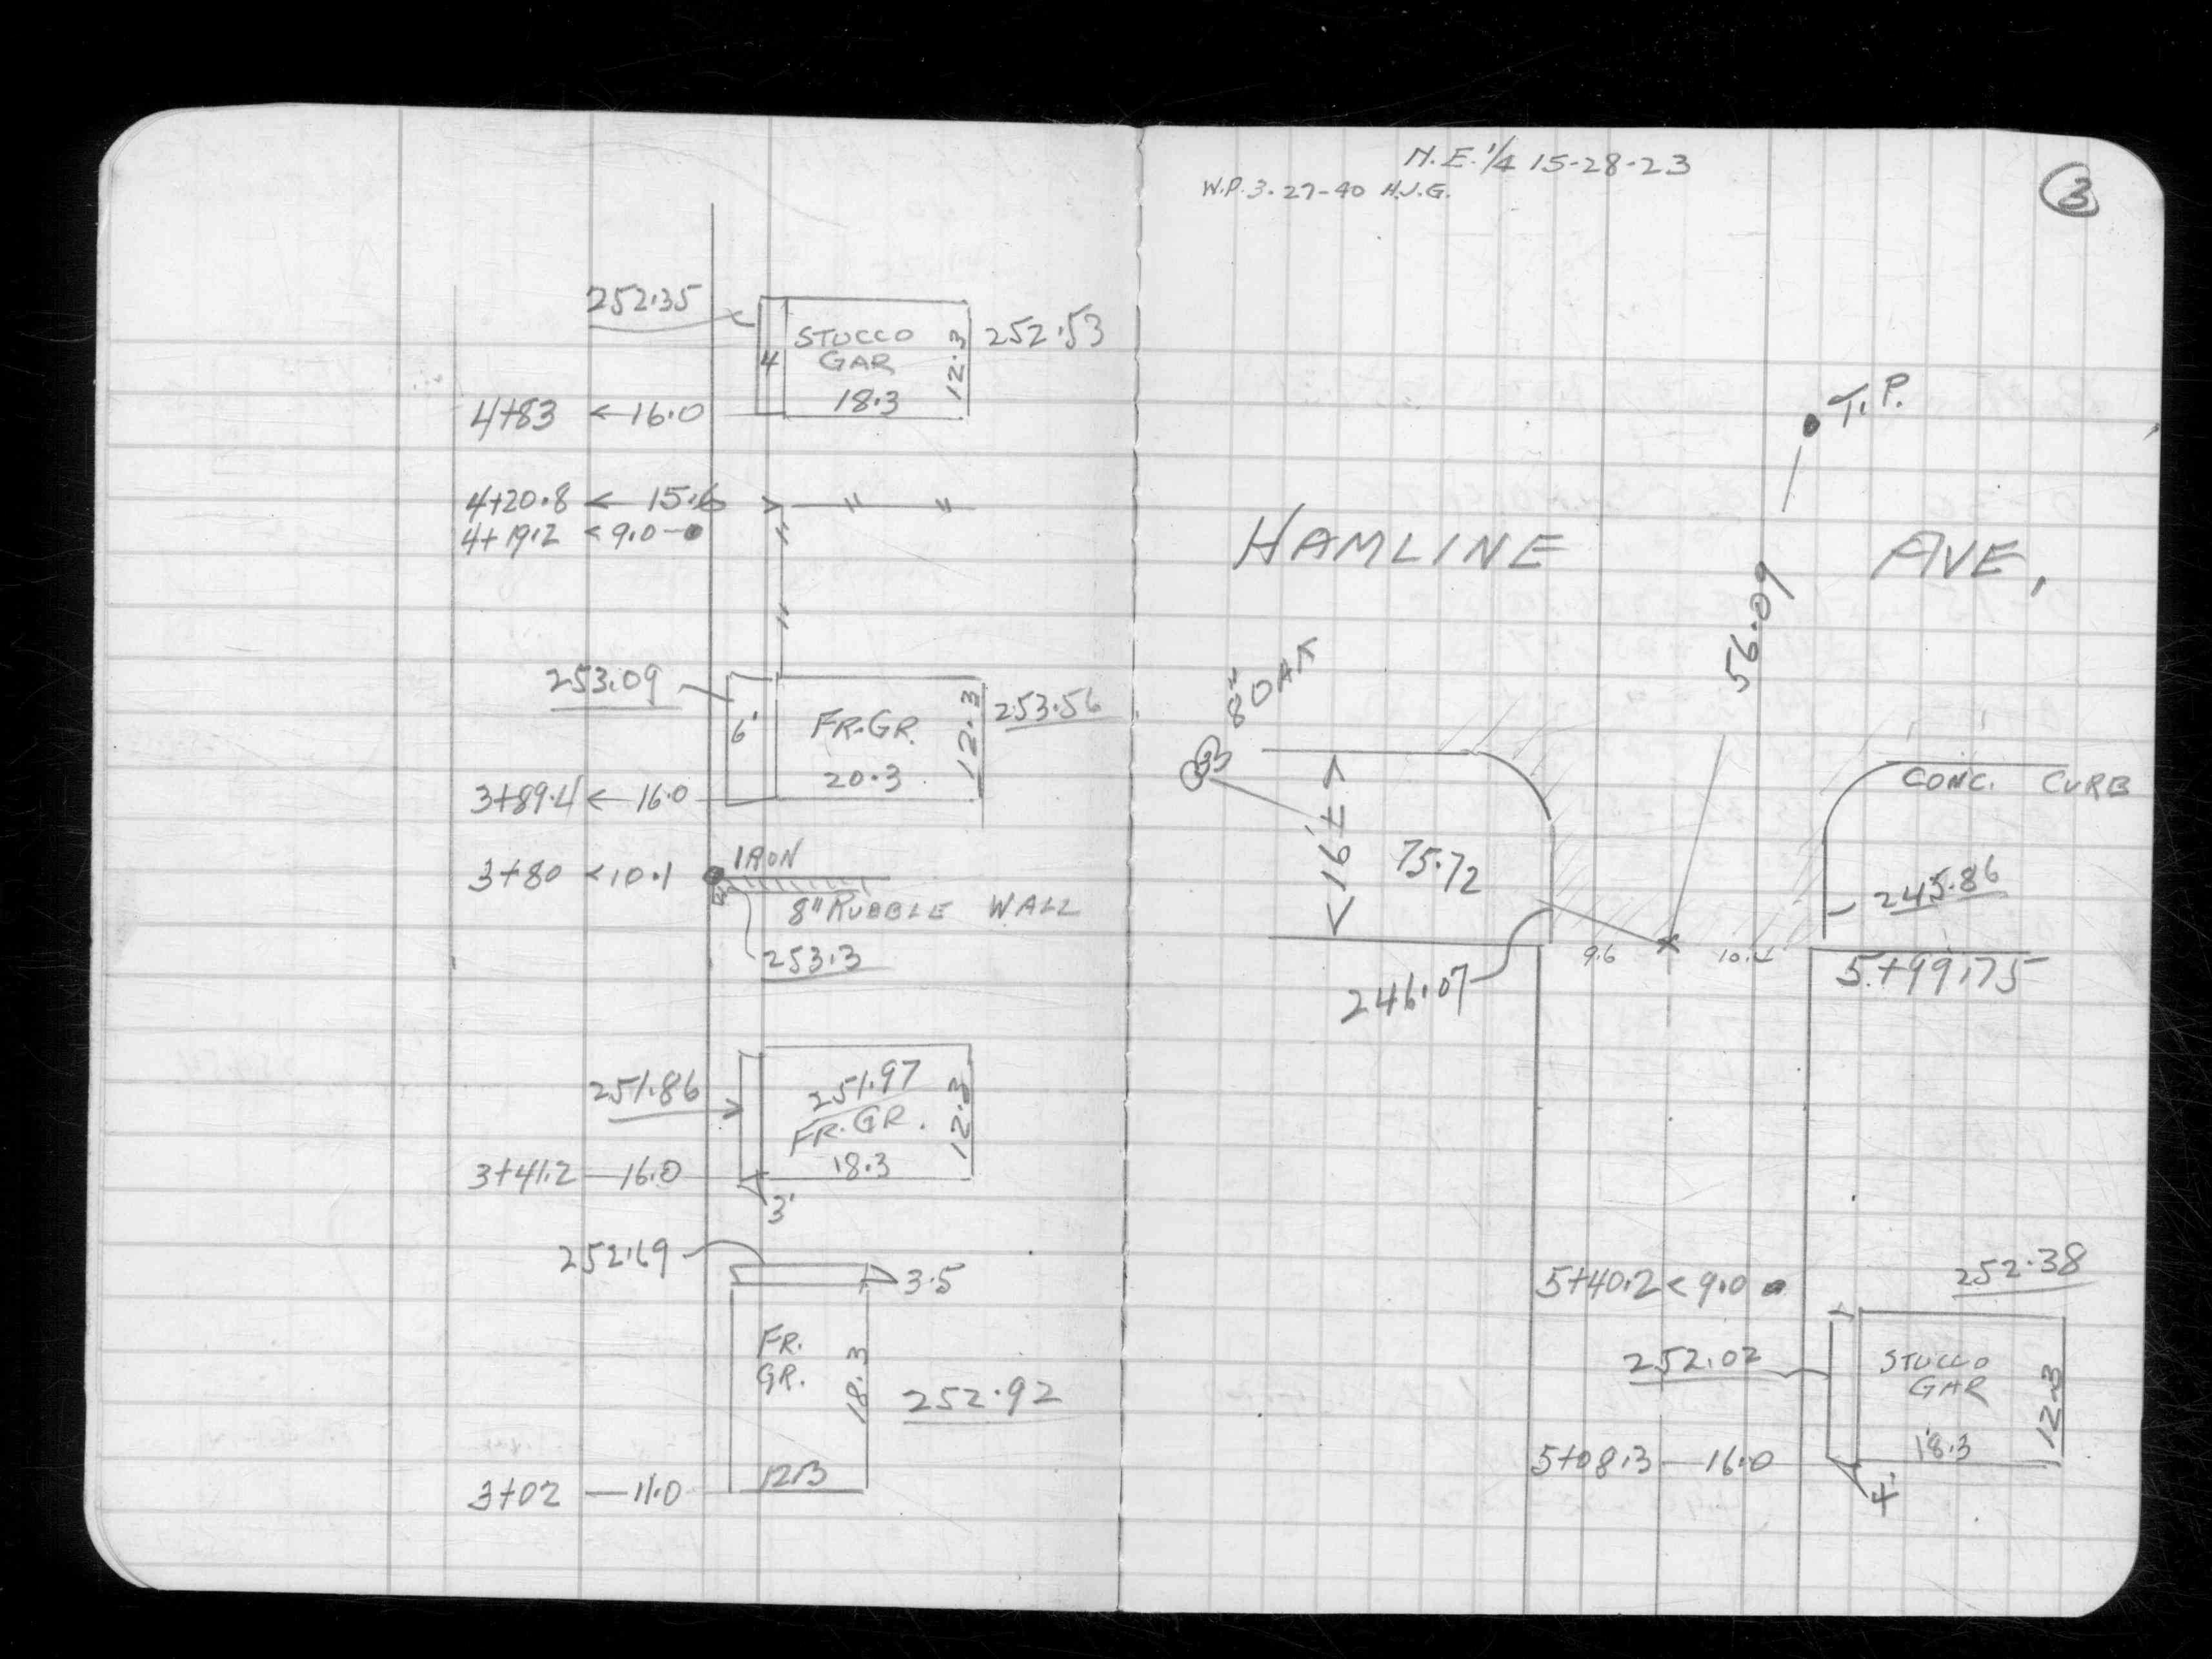 252.35
STUCCO
GAR
4
18.3
12.3
252.53
4+83 < 16.0
4+20.8 < 15.6
4+19.2 < 9.0
253.09
6'
FR.GR.
20.3
12.3
253.56
3+89.4 < 16.0
3+80 < 10.1
IRON
8" RUBBLE WALL
253.3
251.86
251.97
FR.GR.
18.3
12.3
3+41.2 — 16.0
3'
252.69
3.5
FR.
GR.
18.3
252.92
12.3
3+02 — 11.0
N.E.1/4 15-28-23
W.P. 3-27-40 H.J.G.
3
T.P.
HAMLINE AVE.
56.09
8" OAK
16'±
75.72
CONC. CURB
245.86
9.6
10.4
5+99.75
246.07
5+40.2 < 9.0
252.38
252.02
STUCCO
GAR
18.3
12.3
5+08.3 — 16.0
4'